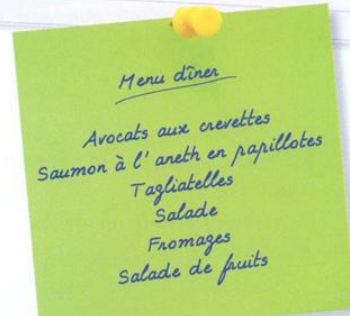 Menu dîner
Avocats aux crevettes
Saumon à l'aneth en papillotes
Tagliatelles
Salade
Fromages
Salade de fruits